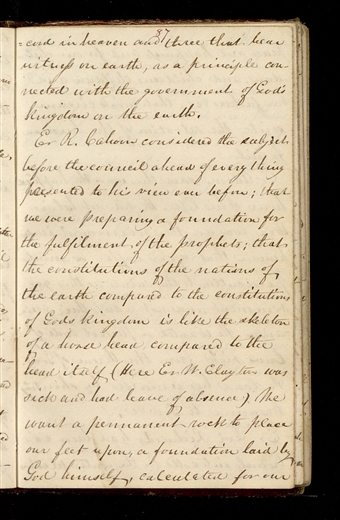 87
=cord in heaven and three that bear
witness on earth, as a principle con-
nected with the government of God's
kingdom on the earth.
Er R. Cahoon considered the subject
before the council ahead of every thing
presented to his view ever before; that
we were preparing a foundation for
the fulfilment of the prophets; that
the constitutions of the nations of
the earth compared to the constitution
of Gods kingdom is like the skeleton
of a horse head compared to the
head itself (Here Er W. Clayton was
sick and had leave of absence). We
want a permanent rock to place
our feet upon, a foundation laid by
God himself, calculated for our